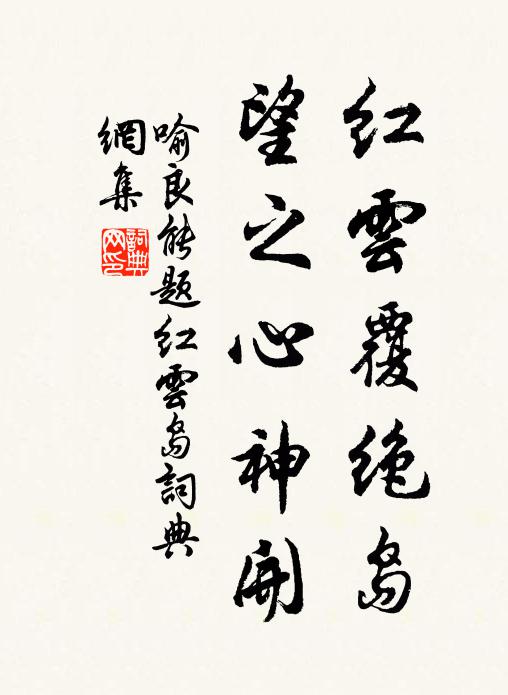 红雲覆绝岛
望之心神開
喻良能题红雲岛詞典
網集
詞典
网印